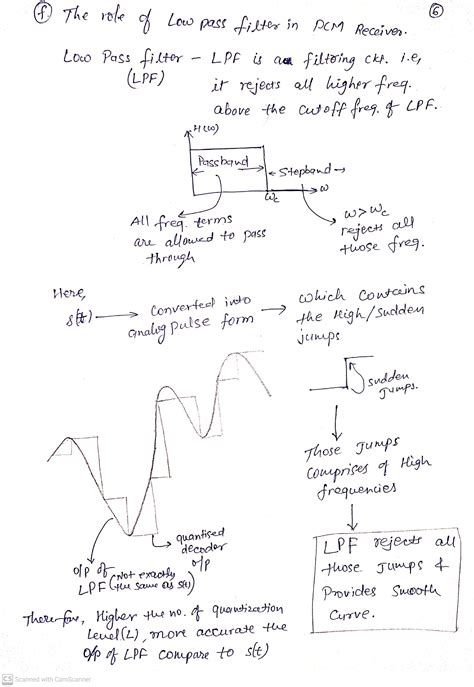 (f) The role of Low pass filter in PCM Receiver.
6
Low Pass filter - LPF is a filtering ckt. i.e,
(LPF)
it rejects all higher freq.
above the cutoff freq. of LPF.
H(ω)
Passband
Stopband
ωc
ω
All freq. terms
are allowed to pass
through
ω>ωc
rejects all
those freq.
Here,
s(t) → Converted into
analog pulse form
→ which contains
the High/Sudden
jumps
sudden
jumps.
Those Jumps
Comprises of High
frequencies
quantised
decoder
o/p
o/p of
LPF (Not exactly
the same as s(t))
LPF rejects all
those Jumps &
Provides Smooth
Curve.
Therefore, Higher the no. of quantization
Level(L), more accurate the
o/p of LPF compare to s(t)
CS Scanned with CamScanner